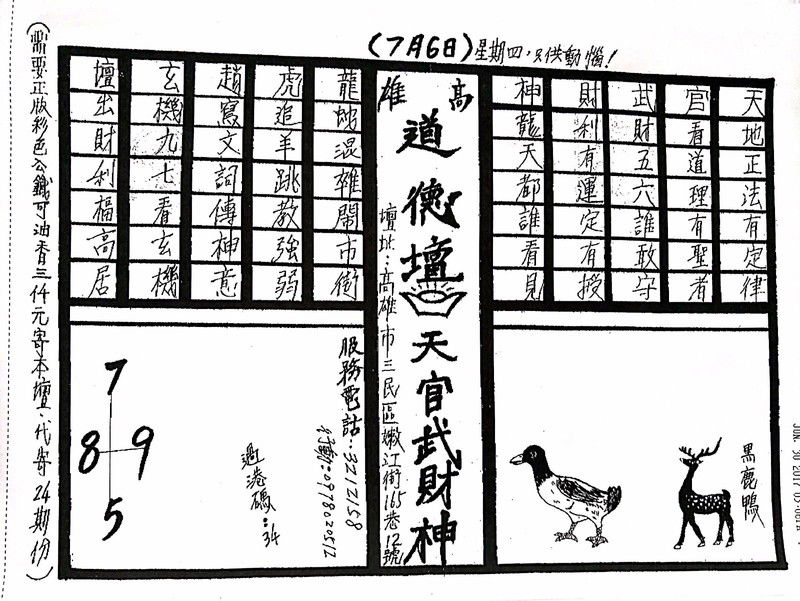 (7月6日)星期四,只供動惱!
天地正法有定律
官看道理有聖者
武財五六誰敢守
財利有運定有授
神龍天都誰看見
高雄
道德壇
天官武財神
壇址:高雄市三民區嫩江街165巷12號
龍地混雜鬧市街
虎追羊跳教強弱
趙寫文詞傳神意
玄機九七看玄機
壇出財利福高居
黑鹿鴨
服務電話:3212158
行動:0978020512
過港碼:34
7
8 9
5
(需要正版彩色公鐵可油香三仟元寄本壇,代寄24期份)
JUN 30 2017